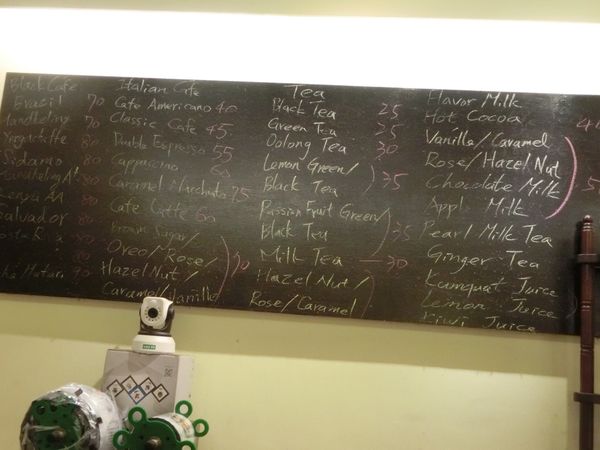 Black Cafe
Brazil 70
Mandheling 70
80
Sidamo 80
80
Kenya AA 80
Salvador 80
80
Matari 90
Italian Cafe
Cafe Americano 40
Classic Cafe 45
Double Espresso 55
Cappuccino 60
Caramel Macchiato 75
Cafe Latte 60
Brown Sugar/
Oreo/Rose/
Hazel Nut/
Caramel/Vanille
70
Tea
Black Tea 25
Green Tea 25
Oolong Tea 30
Lemon Green/
Black Tea 35
Passion Fruit Green/
Black Tea 35
Milk Tea 30
Hazel Nut/
Rose/Caramel
Flavor Milk
Hot Cocoa
Vanilla/Caramel
Rose/Hazel Nut
Chocolate Milk
Apple Milk
Pearl Milk Tea
Ginger Tea
Kumquat Juice
Lemon Juice
Kiwi Juice